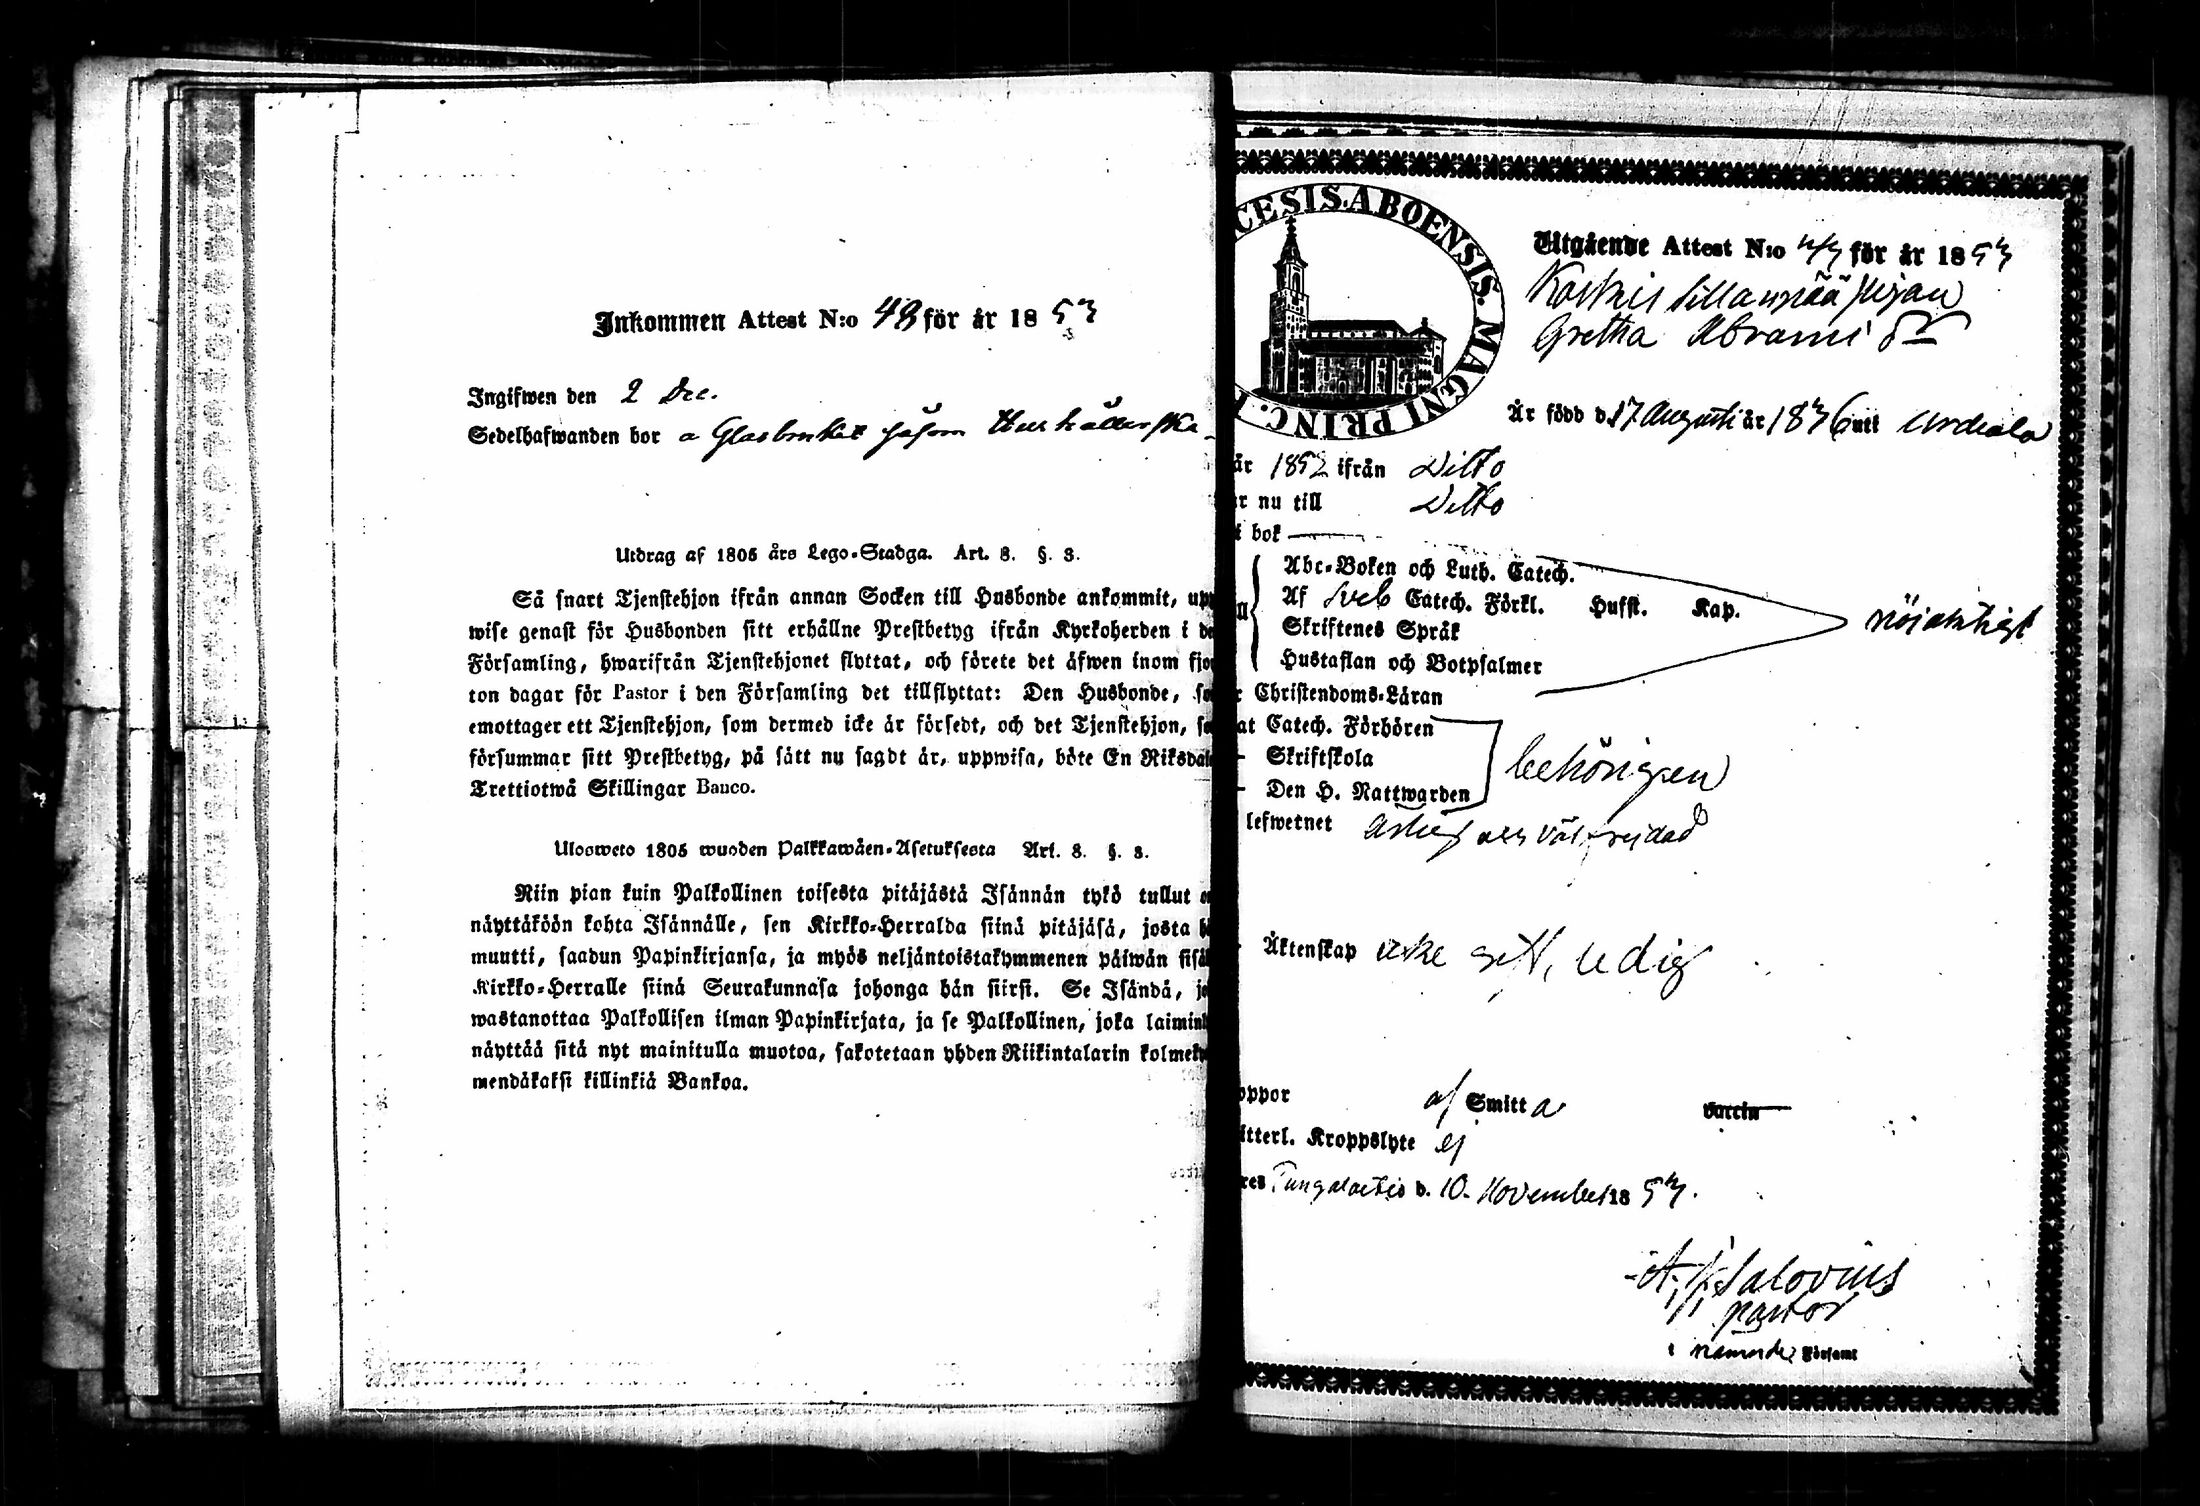 Inkommen Attest N:o 48 för år 1853
Ingifwen den 2 Dec.
Sedelhafwanden bor a Glasbruket såsom
Utdrag af 1805 års Lego-Stadga. Art. 3. §. 3.
Så snart Tjenstehjon ifrån annan Socken till Husbonde ankommit, upp
wise genast för Husbonden sitt erhållne Prestbetyg ifrån Kyrkoherden i de
Församling, hwarifrån Tjenstehjonet flyttat, och förete det äfwen inom fjor
ton dagar för Pastor i den Församling det tillflyttat: Den Husbonde, so
emottager ett Tjenstehjon, som dermed icke är försedt, och det Tjenstehjon, so
försummar sitt Prestbetyg, på sätt nu sagdt är, uppwisa, böte En Riksdale
Trettiotwå Skillingar Banco.
Ulosweto 1805 wuoden Palkkawäen-Asetuksesta Art. 3. §. 3.
Niin pian kuin Palkollinen toisesta pitäjästä Isännän tykö tullut o
näyttäköön kohta Isännälle, sen Kirkko-Herralda siinä pitäjäsä, josta h
muutti, saadun Papinkirjansa, ja myös neljäntoistakymmenen päiwän sisä
Kirkko-Herralle siinä Seurakunnasa johonga hän siirsi. Se Isändä, jo
wastanottaa Palkollisen ilman Papinkirjata, ja se Palkollinen, joka laimin
näyttää sitä nyt mainitulla muotoa, sakotetaan yhden Riikintalarin kolmeky
mendäkaksi killinkiä Bankoa.
CESIS. ABOENSIS. MAGNI PRINC.
Utgående Attest N:o 43 för år 1853
Koskis Sillanpää Pigan
Gretha Abrams dr
Är född d. 17 Augusti år 1836 uti Urdiala
år 1852 ifrån Ditto
r nu till Ditto
i bok
Abc-Boken och Luth. Catech.
Af Sveb Catech. Förkl. Husst. Kap. nöjaktigt
Skriftenes Språk
Hustaflan och Botpsalmer
r Christendoms-Läran
at Catech. Förhören
Skriftskola behörigen
Den H. Nattwarden
lefwernet ärlig och väl frejdad
Äktenskap icke gift, ledig
oppor af Smitta vaccin
itterl. Kroppslyte ej
res Tungelaetis d. 10. November 1853.
A. F. Salovius
pastor
i nämnde Församl